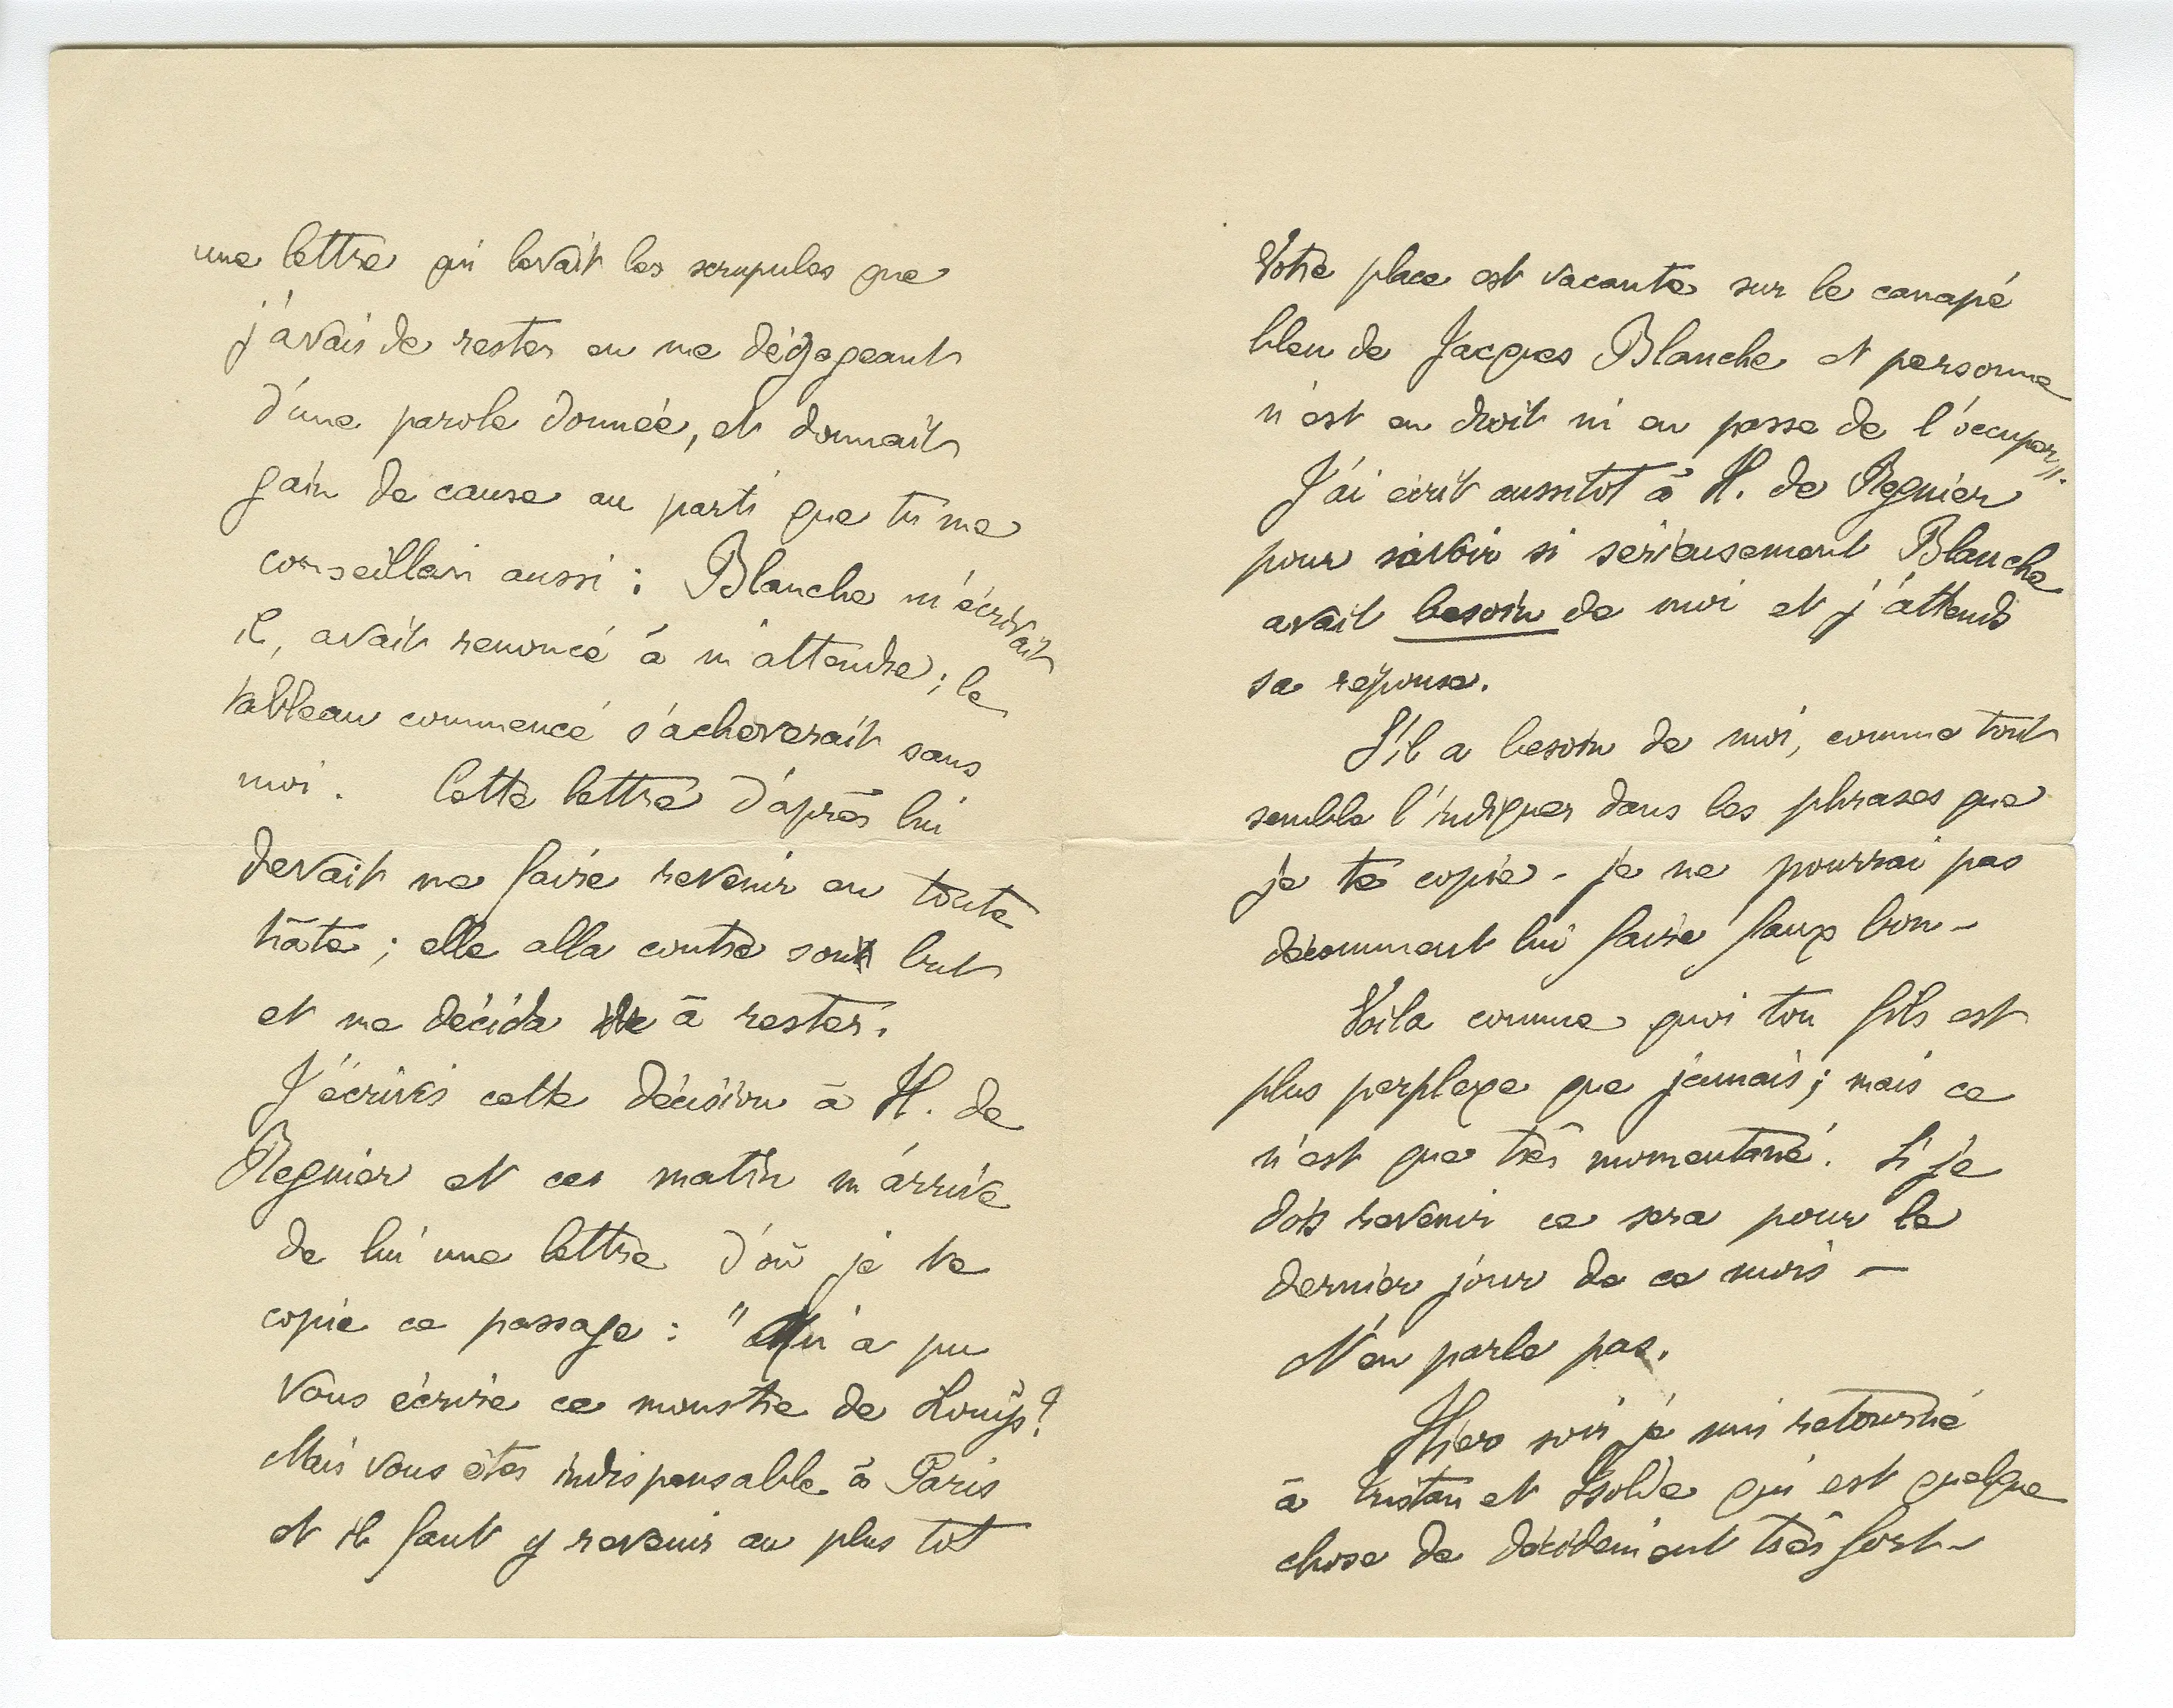 une lettre qui levait les scrupules que
j'avais de rester en me dégageant
d'une parole donnée, et donnait
gain de cause au parti que tu me
conseillais aussi : Blanche m'écrivait
il, avait renoncé à m'attendre ; le
tableau commencé s'achèverait sans
moi. Cette lettre d'après lui
devait me faire revenir en toute
hâte ; elle alla contre son but
et me décida à rester.
J'écrivis cette décision à H. de
Regnier et ce matin m'arrive
de lui une lettre d'où je te
copie ce passage : "Qu'a pu
vous écrire ce monstre de Louÿs ?
Mais vous êtes indispensable à Paris
et il faut y revenir au plus tôt
Votre place est vacante sur le canapé
bleu de Jacques Blanche et personne
n'est en droit ni en passe de l'occuper".
J'ai écrit aussitôt à H. de Regnier
pour savoir si sérieusement Blanche
avait besoin de moi et j'attends
sa réponse.
S'il a besoin de moi, comme tout
semble l'indiquer dans les phrases que
je te copie - je ne pourrai pas
décemment lui faire faux bon -
Voila comme quoi ton fils est
plus perplexe que jamais ; mais ce
n'est que très momentané. Si je
dois revenir ce sera pour le
dernier jour de ce mois —
N'en parle pas.
Hier soir je suis retourné
à Tristan et Isolde qui est quelque
chose de décidément très fort -